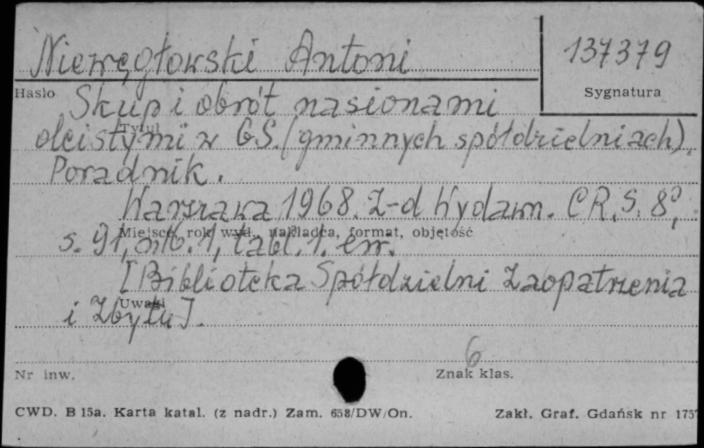 Niewęgłowski Antoni
137379
Hasło
Sygnatura
Skup i obrót nasionami
Tytuł
oleistymi w GS. (gminnych spółdzielniach).
Poradnik.
Warszawa 1968. Z-d Wydawn. CRS. 8°,
Miejsce, rok wyd., nakładca, format, objętość
s. 91, nlb. 1, tabl. 1. err.
[Biblioteka Spółdzielni Zaopatrzenia
Uwagi
i Zbytu].
6
Nr inw.
Znak klas.
CWD. B 15a. Karta katal. (z nadr.) Zam. 658/DW/On.
Zakł. Graf. Gdańsk nr 1757